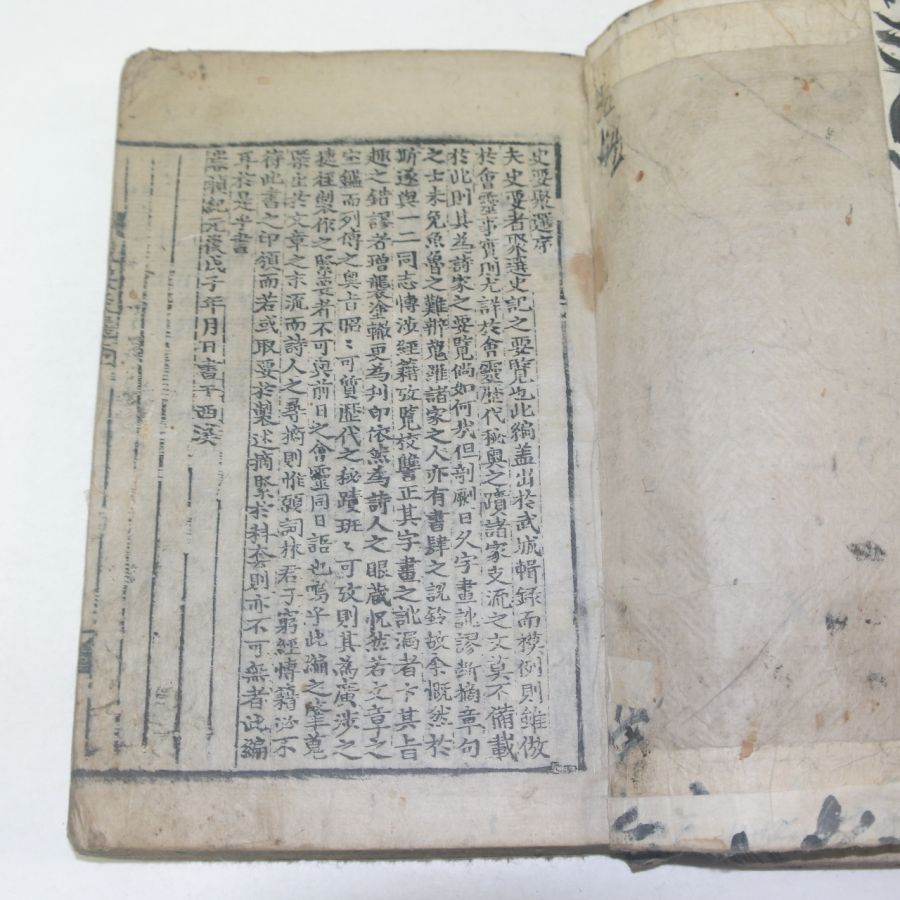 史要聚選序
夫史要者聚選史記之要覽也此編盖出於武城輯錄而模例則雖倣
於會靈事實則尤詳於會靈歷代秘奧之蹟諸家支流之文莫不備載
於此則其為詩家之要覽倘如何哉但剞劂日久字畫訛謬斷摘章句
之士未免魚魯之難辨蒐羅諸家之人亦有書肆之說鈴故余慨然於
斯遂與一二同志博涉經籍攷覽校讐正其字畫之訛漏者卞其旨
趣之錯謬者增襲塗轍更為刊印依然為詩人之眼藏怳然若文章之
宝鑑而列傳之奧旨昭〻可質歷代之秘蹟班〻可攷則其為廣涉之
捷徑製作之緊要者不可與前日之會靈同日語也嗚乎此編之
聚出於文章之末流而詩人之尋摘則惟願詞林君子窮經博籍必不
待此書之印頒而若或取要於製述摘緊於科套則亦不可無者此編
耳於是乎書
崇禎紀元後 子年月日書于西溪